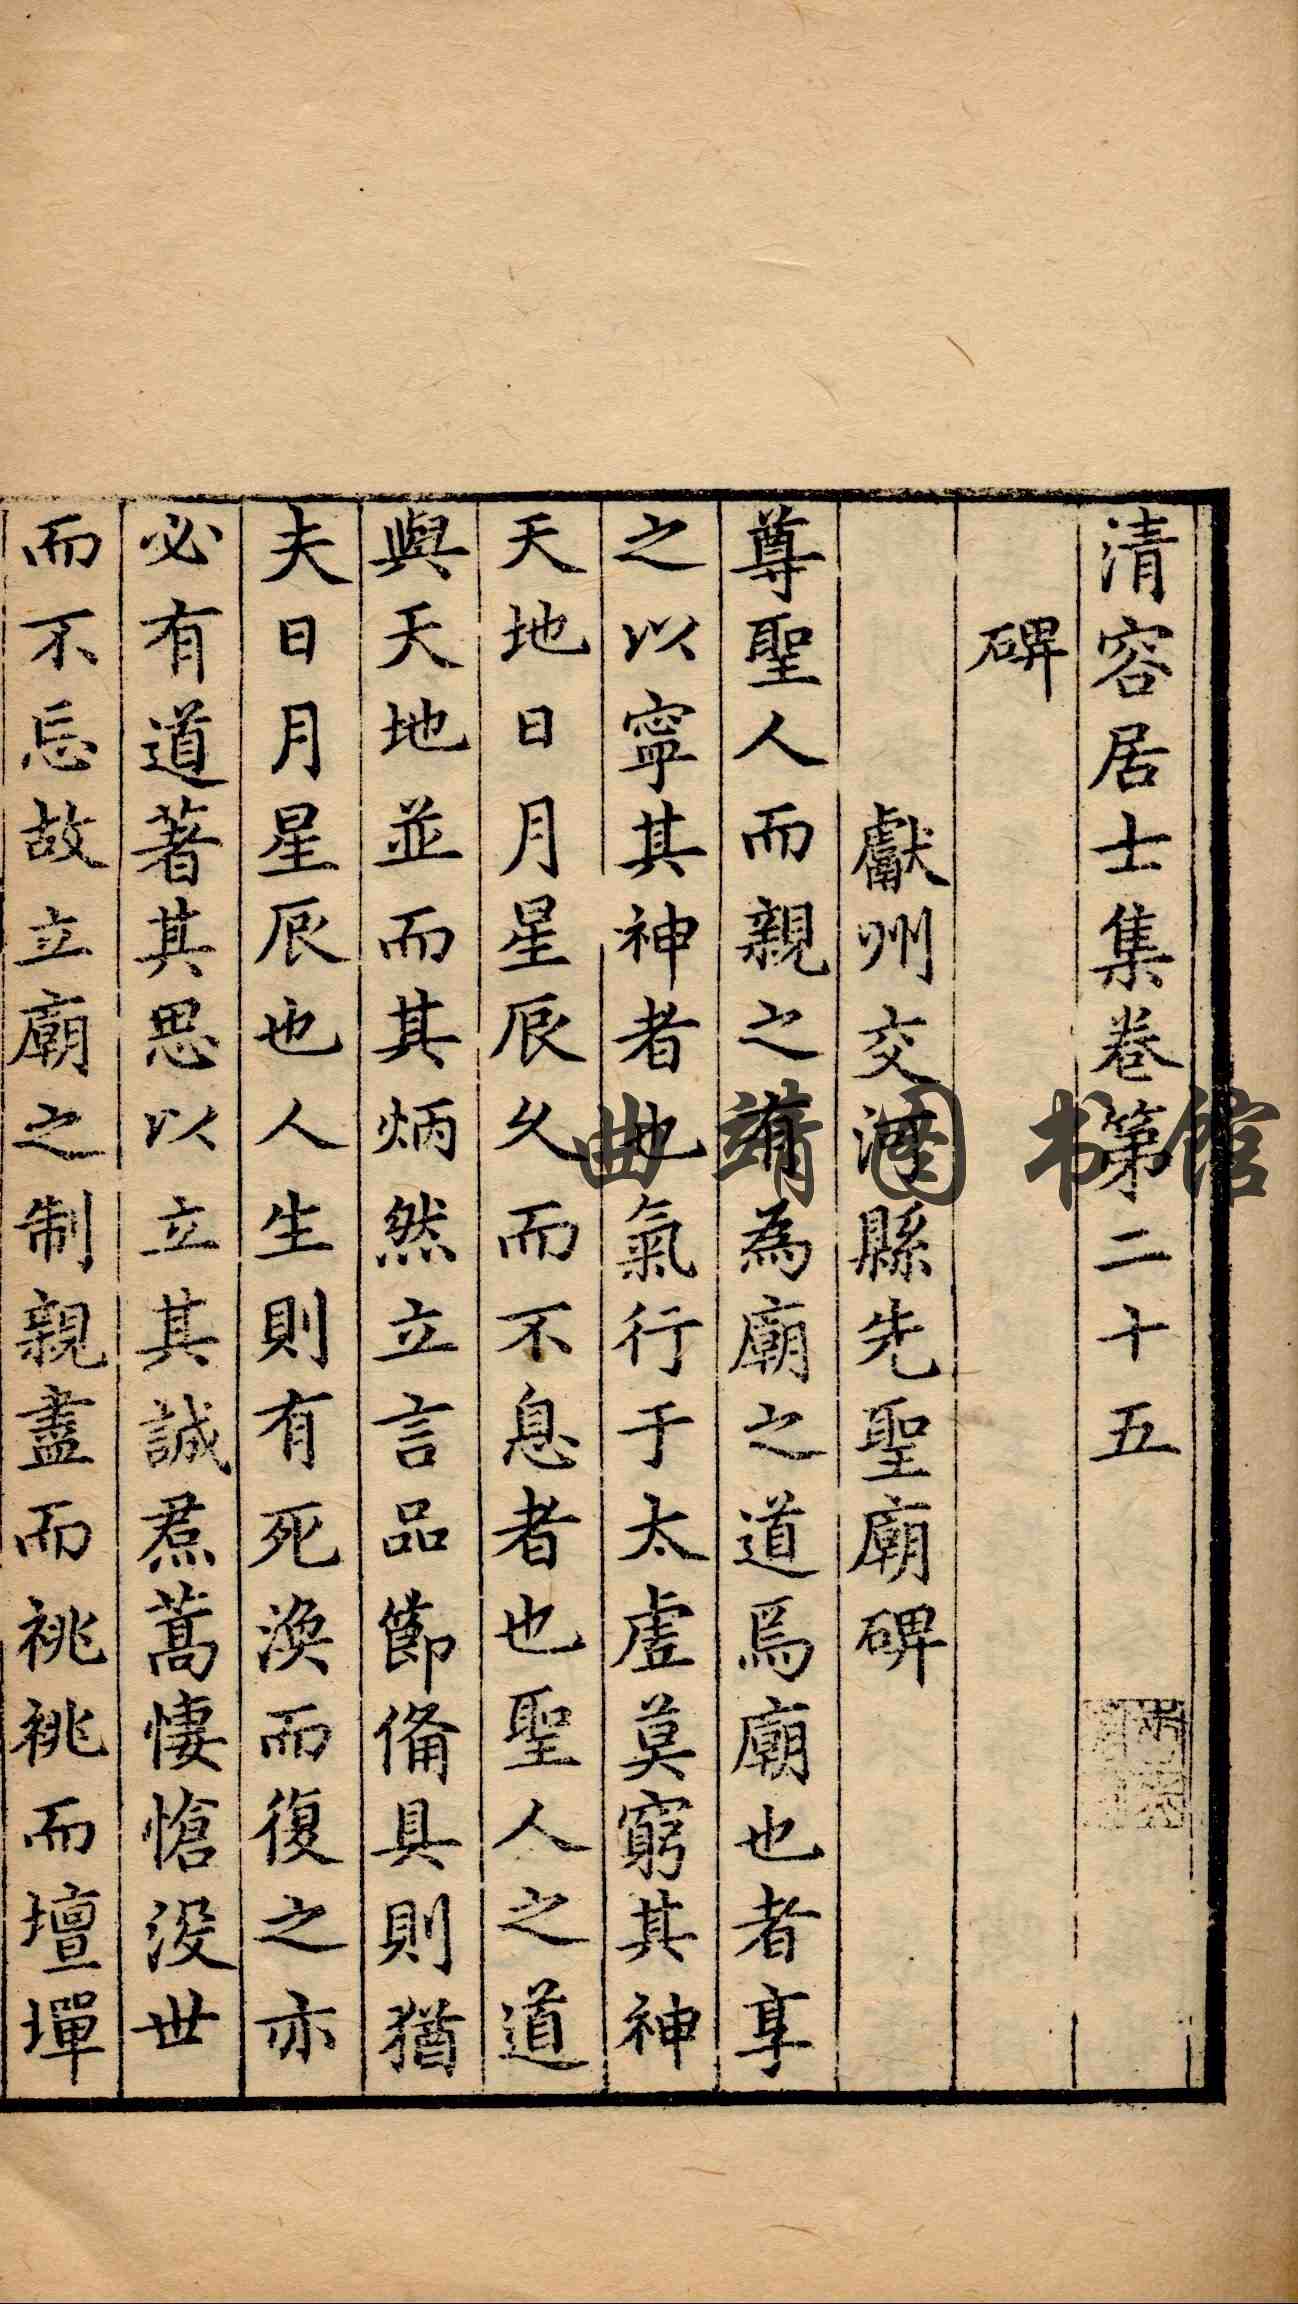 清容居士集卷第二十五
碑
獻州交河縣先聖廟碑
尊聖人而親之有為廟之道焉廟也者享
之以寧其神者也氣行于太虛莫窮其神
天地日月星辰久而不息者也聖人之道
與天地並而其炳然立言品節備具則猶
夫日月星辰也人生則有死渙而復之亦
必有道著其思以立其誠焄蒿悽愴没世
而不忘故立廟之制親盡而祧祧而壇墠
曲靖图书馆